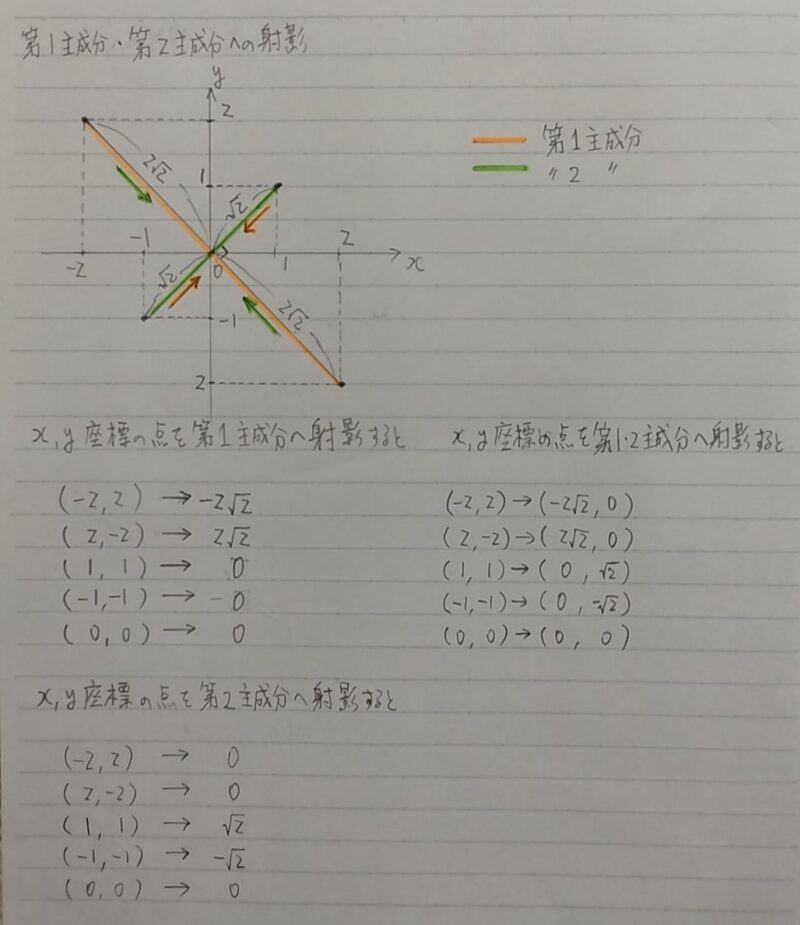 第1主成分・第2主成分への射影
y
2
2√2
1
√2
-2
-1
0
1
2
x
√2
-1
2√2
2
第1主成分
〃 2 〃
x,y座標の点を第1主成分へ射影すると
(-2,2) → -2√2
(2,-2) → 2√2
(1, 1) → 0
(-1,-1) → 0
(0, 0) → 0
x,y座標の点を第1・2主成分へ射影すると
(-2,2)→(-2√2,0)
(2,-2)→(2√2,0)
(1, 1)→(0, √2)
(-1,-1)→(0, -√2)
(0, 0)→(0, 0)
x,y座標の点を第2主成分へ射影すると
(-2,2) → 0
(2,-2) → 0
(1, 1) → √2
(-1,-1) → -√2
(0,0) → 0